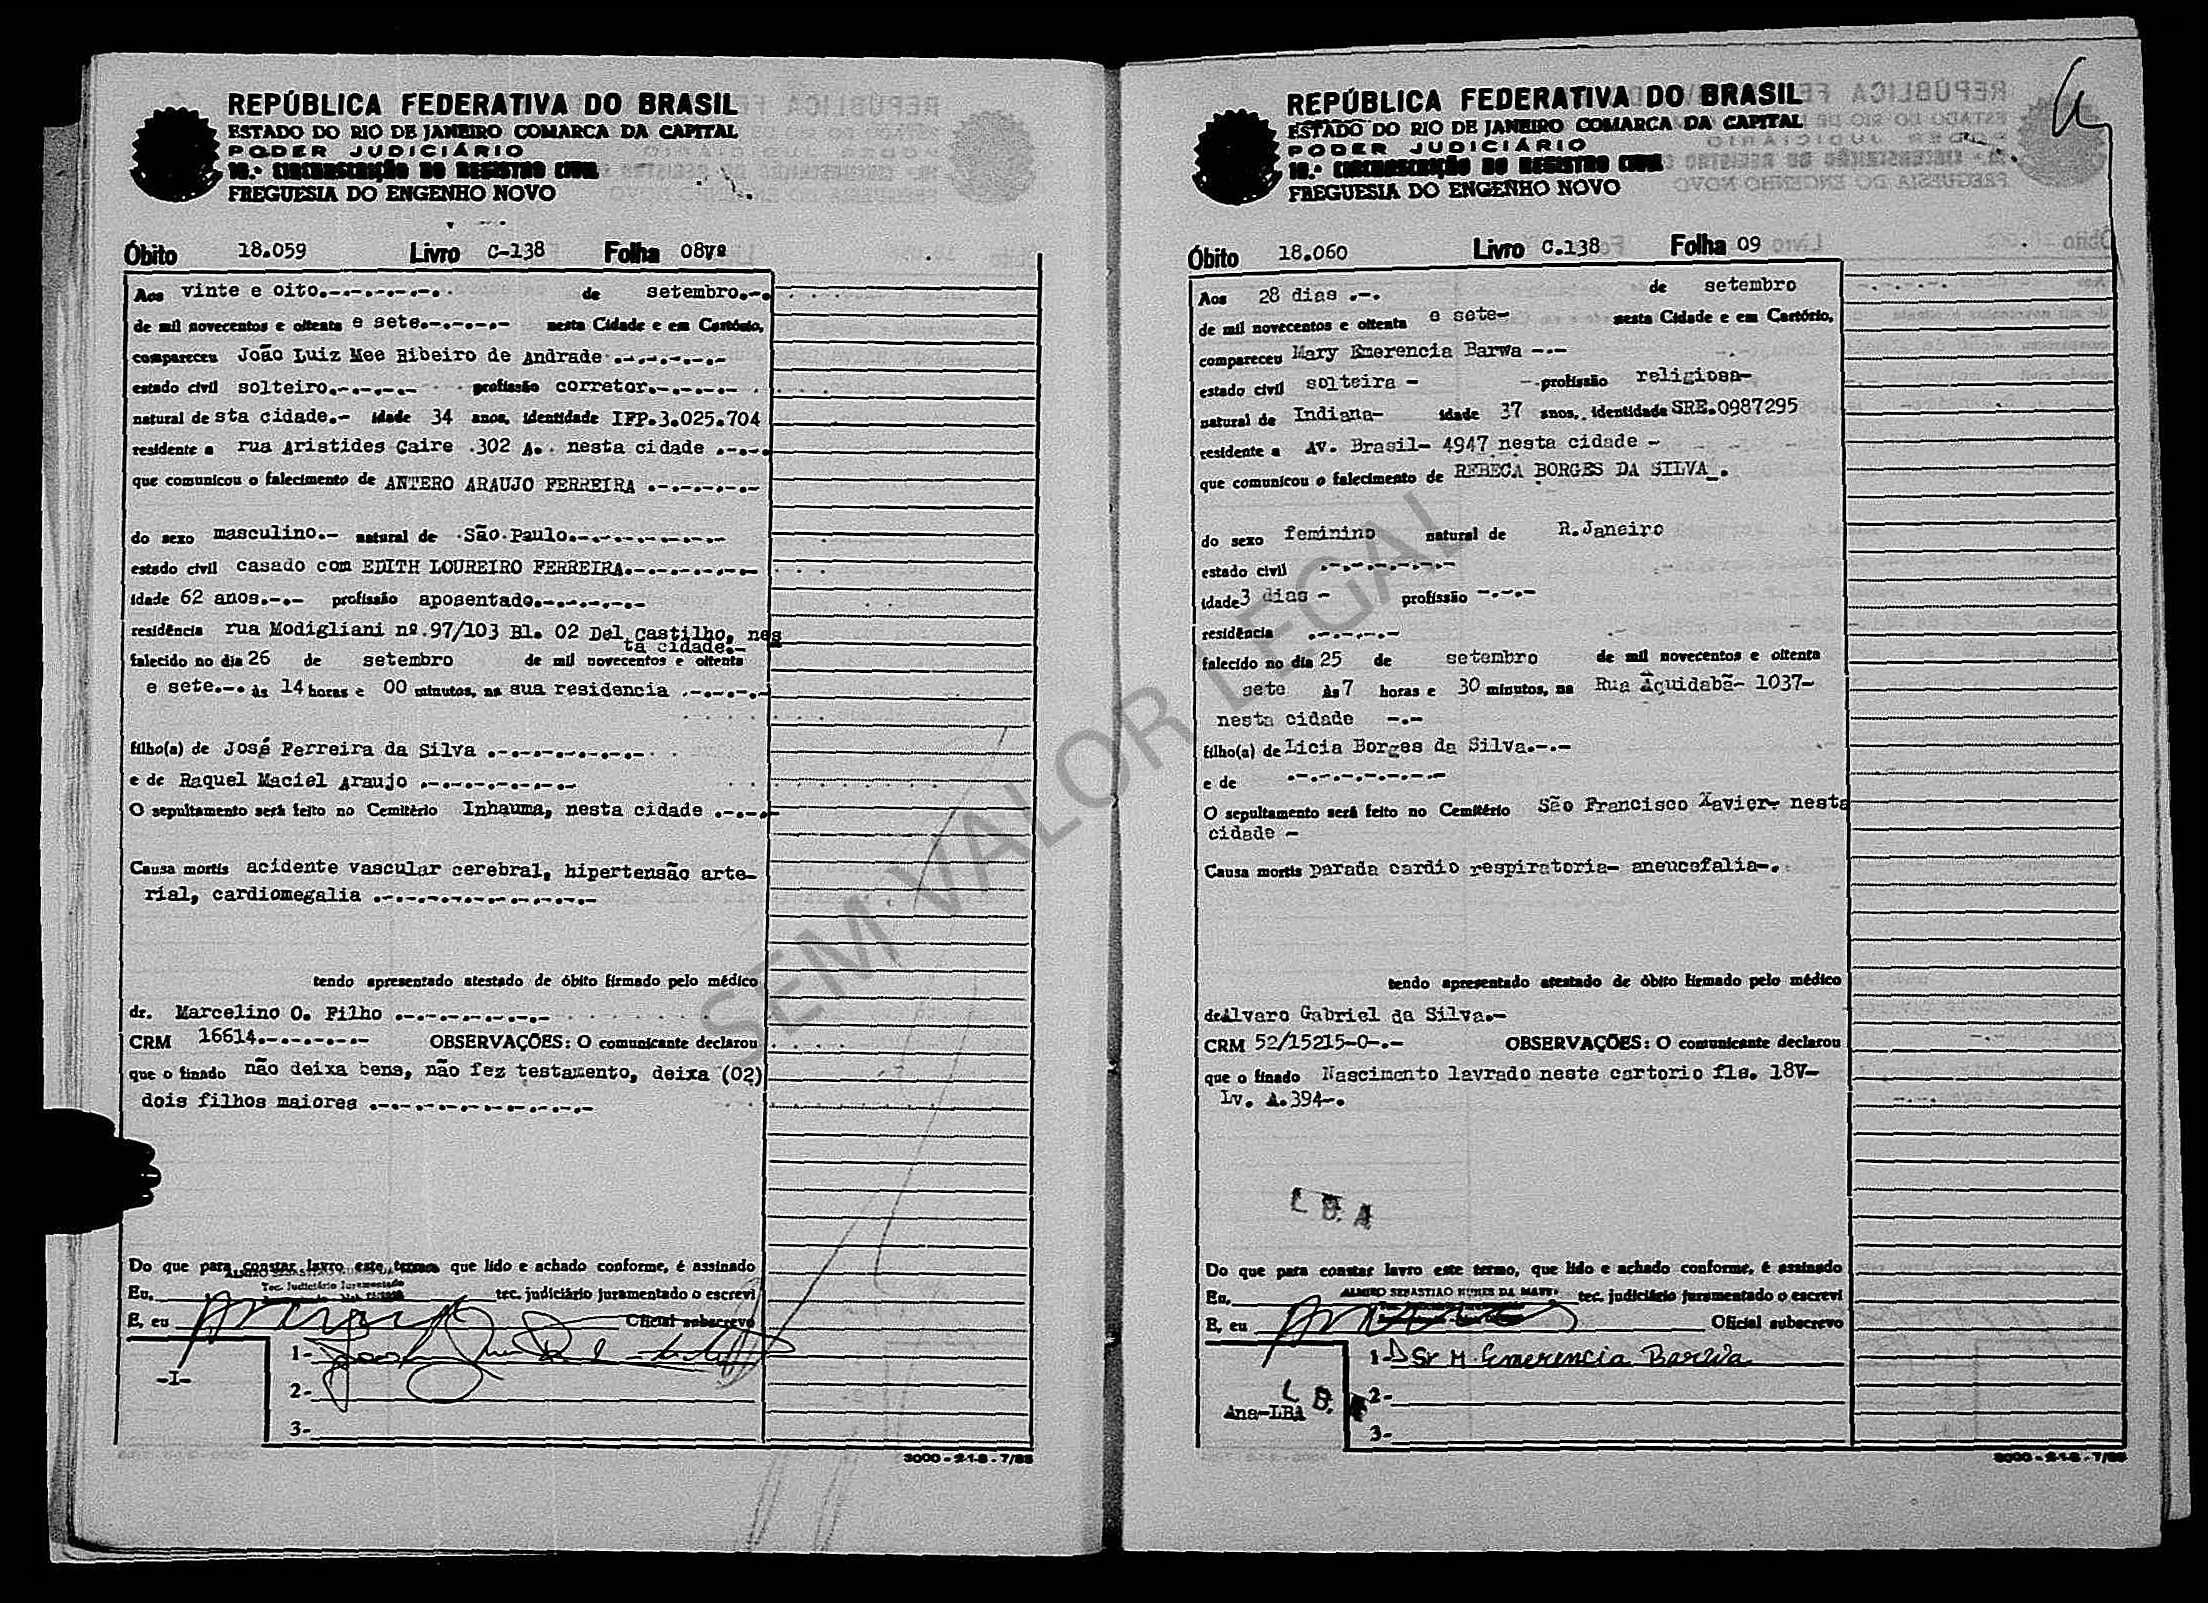 REPÚBLICA FEDERATIVA DO BRASIL
ESTADO DO RIO DE JANEIRO COMARCA DA CAPITAL
PODER JUDICIÁRIO
10.ª CIRCUNSCRIÇÃO DO REGISTRO CIVIL
FREGUESIA DO ENGENHO NOVO
Óbito 18.059 Livro C-138 Folha 08vº
Aos vinte e oito.-.-.-.-.-.-. de setembro.-.
de mil novecentos e oitenta e sete.-.-.-.-.- nesta Cidade e em Cartório,
compareceu João Luiz Mee Ribeiro de Andrade .-.-.-.-.-
estado civil solteiro.-.-.-.-.- profissão corretor.-.-.-.-.-
natural de sta cidade.- idade 34 anos, identidade IFP.3.025.704
residente a rua Aristides Caire .302 A.. nesta cidade .-.-.
que comunicou o falecimento de ANTERO ARAUJO FERREIRA .-.-.-.-.-.-
do sexo masculino.- natural de São Paulo.-.-.-.-.-.-.-.-
estado civil casado com EDITH LOUREIRO FERREIRA.-.-.-.-.-.-.-
idade 62 anos.-.- profissão aposentado.-.-.-.-.-.-
residência rua Modigliani nº.97/103 Bl. 02 Del Castilho, nes
ta cidade.-
falecido no dia 26 de setembro de mil novecentos e oitenta
e sete.-. às 14 horas e 00 minutos, na sua residencia .-.-.-.-
filho(a) de José Ferreira da Silva .-.-.-.-.-.-.-.
e de Raquel Maciel Araujo .-.-.-.-.-.-.-
O sepultamento será feito no Cemitério Inhauma, nesta cidade .-.-.-
Causa mortis acidente vascular cerebral, hipertensão arte-
rial, cardiomegalia .-.-.-.-.-.-.-.-.-.-
tendo apresentado atestado de óbito firmado pelo médico
dr. Marcelino O. Filho .-.-.-.-.-.-.-
CRM 16614.-.-.-.-.-.- OBSERVAÇÕES: O comunicante declarou
que o finado não deixa bens, não fez testamento, deixa (02)
dois filhos maiores .-.-.-.-.-.-.-.-.-.-
Do que para constar lavro este termo que lido e achado conforme, é assinado
Tec. Judiciário Juramentado
Eu, tec. judiciário juramentado o escrevi
E, eu Oficial subscrevo
1-
-I-
2-
3-
3000 - 2-1-8 - 7/85
REPÚBLICA FEDERATIVA DO BRASIL
ESTADO DO RIO DE JANEIRO COMARCA DA CAPITAL
PODER JUDICIÁRIO
10.ª CIRCUNSCRIÇÃO DO REGISTRO CIVIL
FREGUESIA DO ENGENHO NOVO
Óbito 18.060 Livro C.138 Folha 09
Aos 28 dias .-. de setembro
de mil novecentos e oitenta e sete- nesta Cidade e em Cartório,
compareceu Mary Emerencia Barwa -.-
estado civil solteira - -.profissão religiosa-
natural de Indiana- idade 37 anos, identidade SRE.0987295
residente a Av. Brasil- 4947 nesta cidade -
que comunicou o falecimento de REBECA BORGES DA SILVA .
do sexo feminino natural de R.Janeiro
estado civil .-.-.-.-.-.-
idade 3 dias - profissão -.-.-
residência .-.-.-.-
falecido no dia 25 de setembro de mil novecentos e oitenta
sete às 7 horas e 30 minutos, na Rua Aquidabã- 1037-
nesta cidade -.-
filho(a) de Licia Borges da Silva.-.-
e de .-.-.-.-.-.-.-
O sepultamento será feito no Cemitério São Francisco Xavier- nesta
cidade -
Causa mortis parada cardio respiratoria- aneucefalia-.
tendo apresentado atestado de óbito firmado pelo médico
de Alvaro Gabriel da Silva.-
CRM 52/15215-0-.- OBSERVAÇÕES: O comunicante declarou
que o finado Nascimento lavrado neste cartorio fls. 18V-
Lv. A.394-.
L B. A
Do que para constar lavro este termo, que lido e achado conforme, é assinado
ALMIRO SEBASTIAO NUNES DA
Eu, tec. judiciário juramentado o escrevi
E, eu Oficial subscrevo
1- Sr M. Emerencia Barwa
L B. A
2-
Ana-LBA
3-
3000 - 2-1-8 - 7/85
SEM VALOR LEGAL